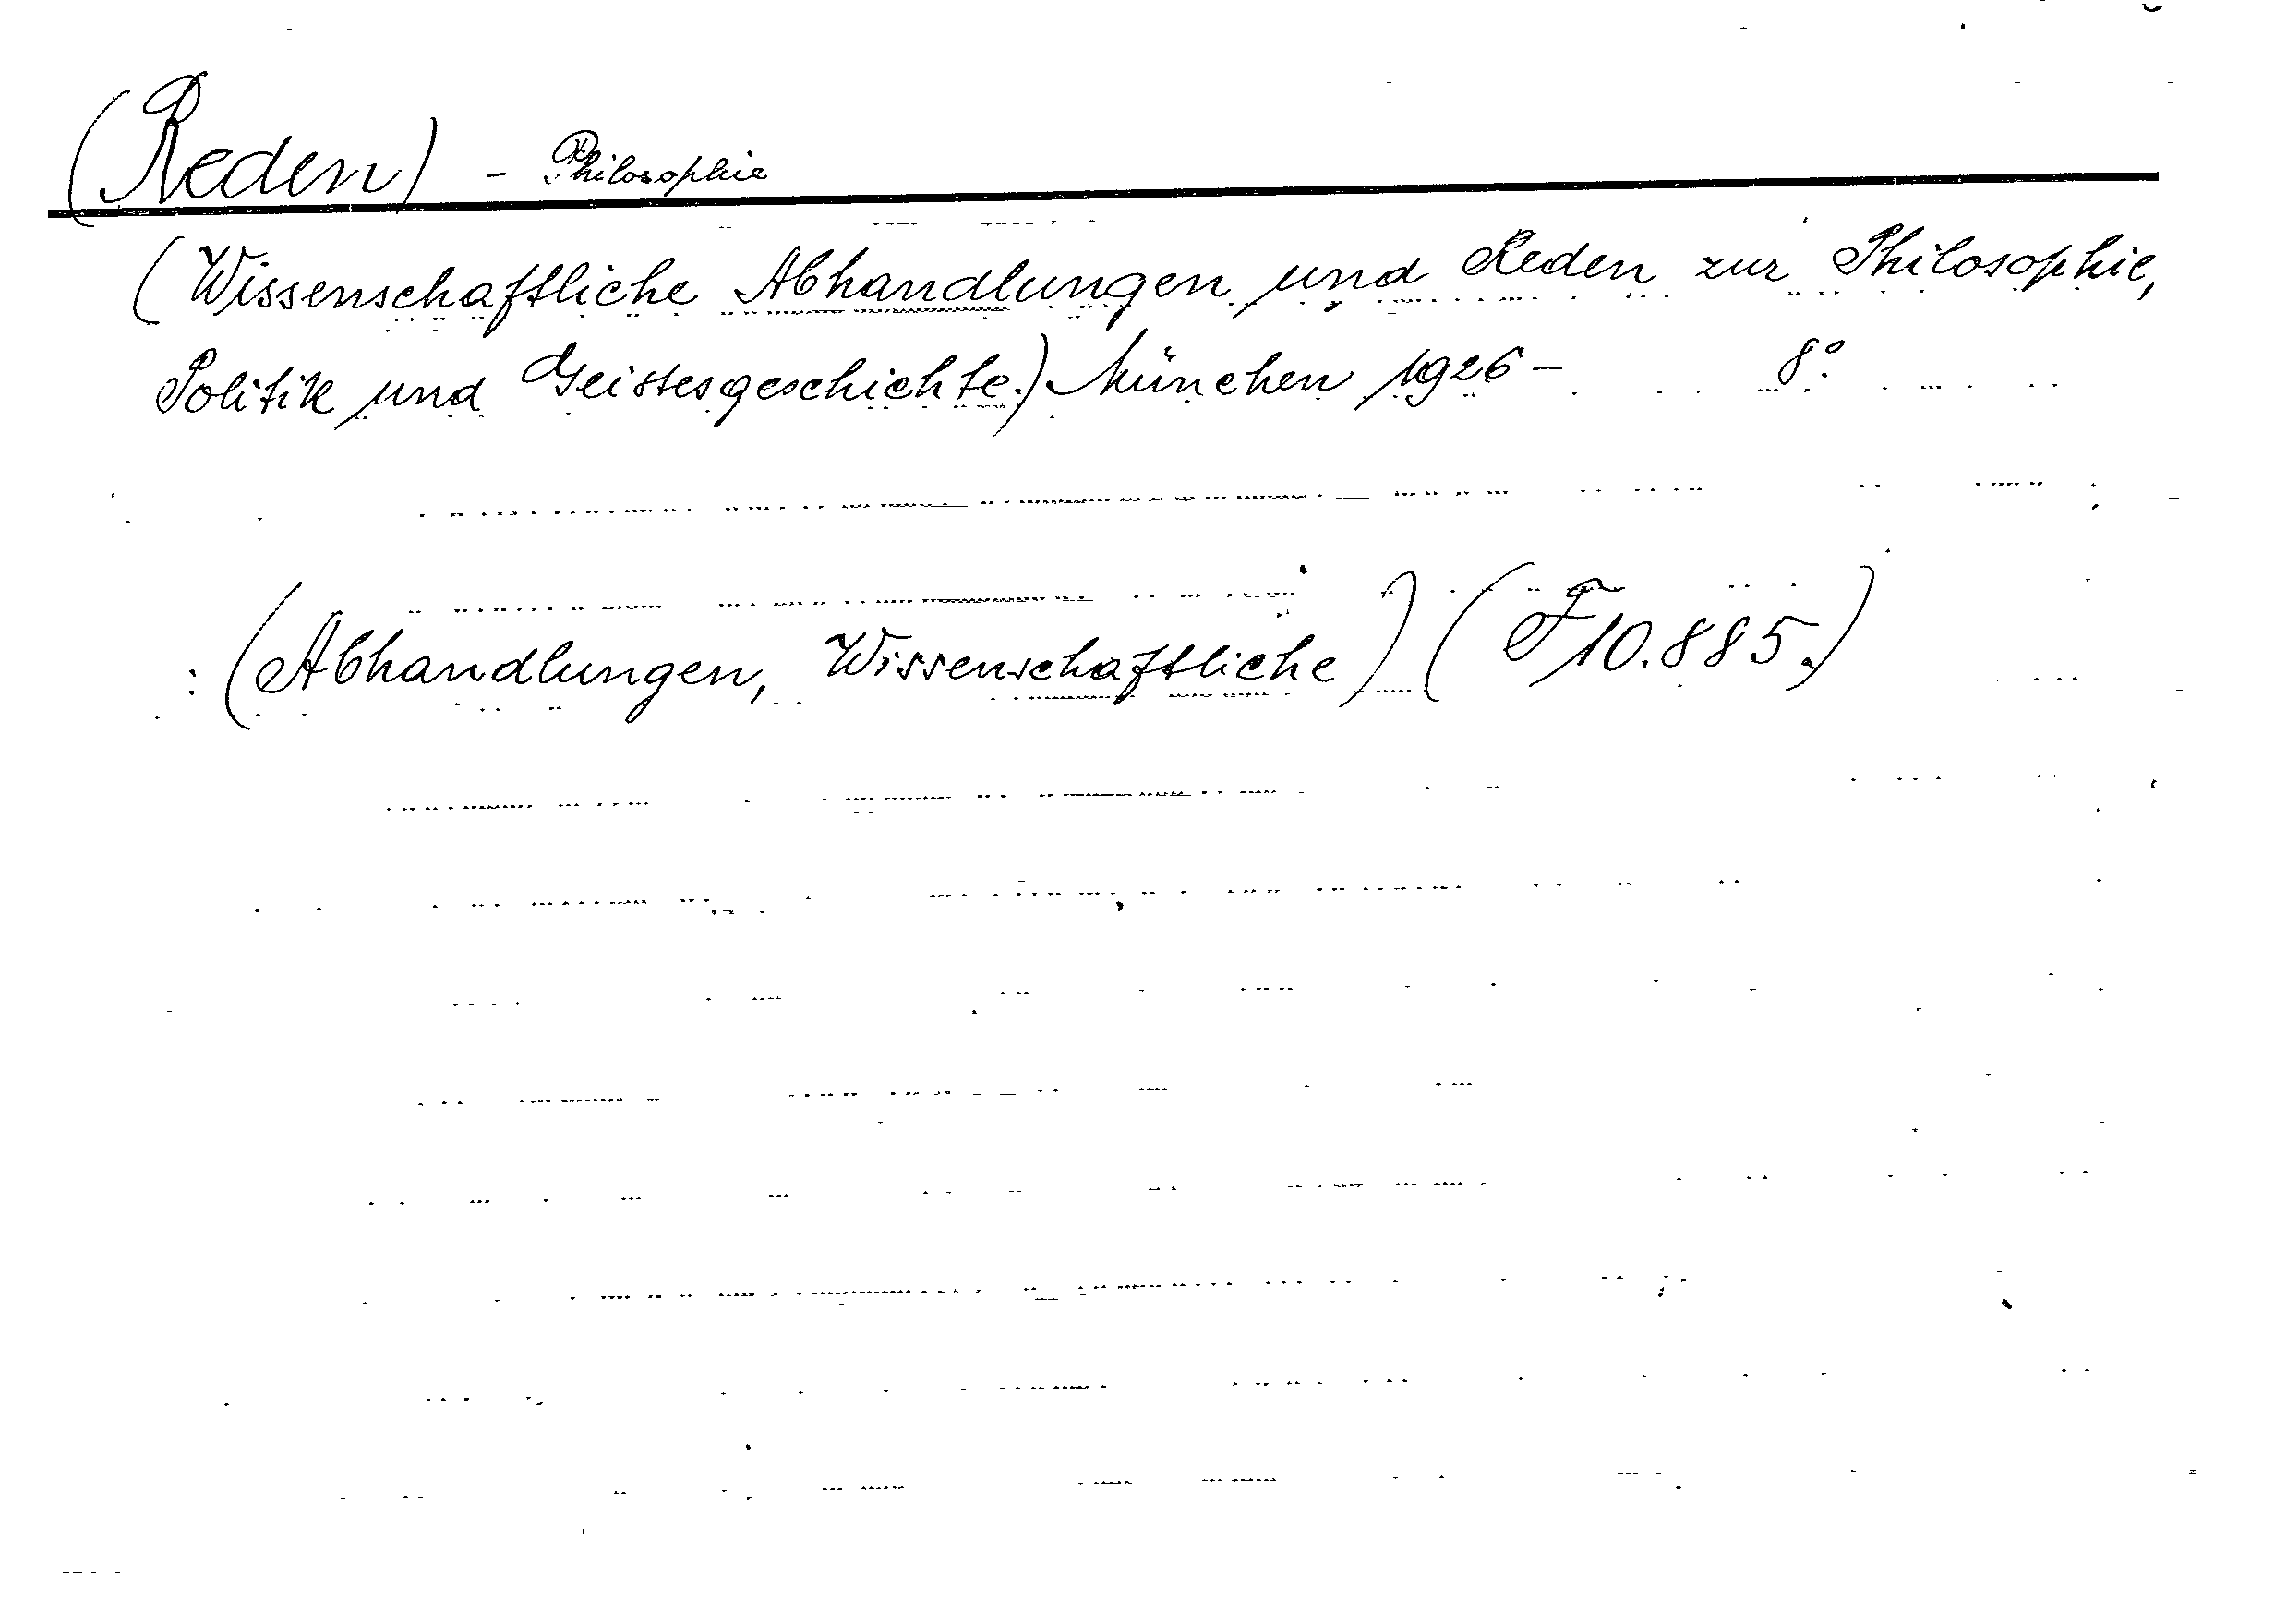 (Reden) - Philosophie
(Wissenschaftliche Abhandlungen und Reden zur Philosophie,
Politik und Geistesgeschichte.) München 1926- 8°.
: (Abhandlungen, Wissenschaftliche) (F 10.885.)